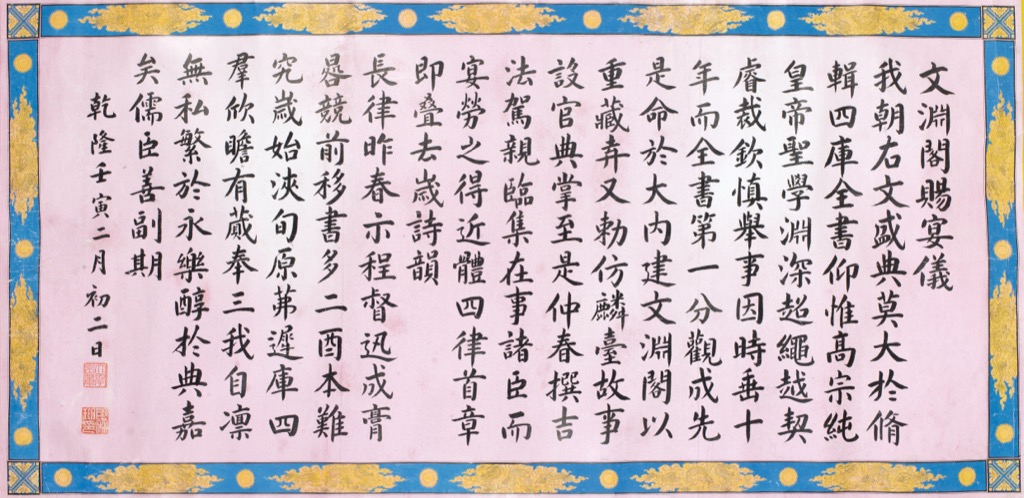 文淵閣賜宴儀
我朝右文盛典莫大於脩
輯四庫全書仰惟高宗純
皇帝聖學淵深超繩越契
睿裁欽慎舉事因時垂十
年而全書第一分觀成先
是命於大內建文淵閣以
重藏弆又勅仿麟臺故事
設官典掌至是仲春撰吉
法駕親臨集在事諸臣而
宴勞之得近體四律首章
即疊去歲詩韻
長律昨春示程督迅成膏
晷競前移書多二酉本難
究歲始浹旬原苐遲庫四
羣欣瞻有蕆奉三我自凛
無私繁於永樂醇於典嘉
矣儒臣善副期
乾隆壬寅二月初二日